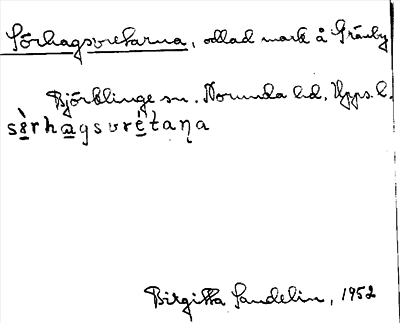 Sörhagsvretarna, odlad mark å Gränby
Björklinge sn. Norunda hd, Upps. l.
sè̱rha̱gsvré̱taṇa
Birgitta Sandelin, 1952